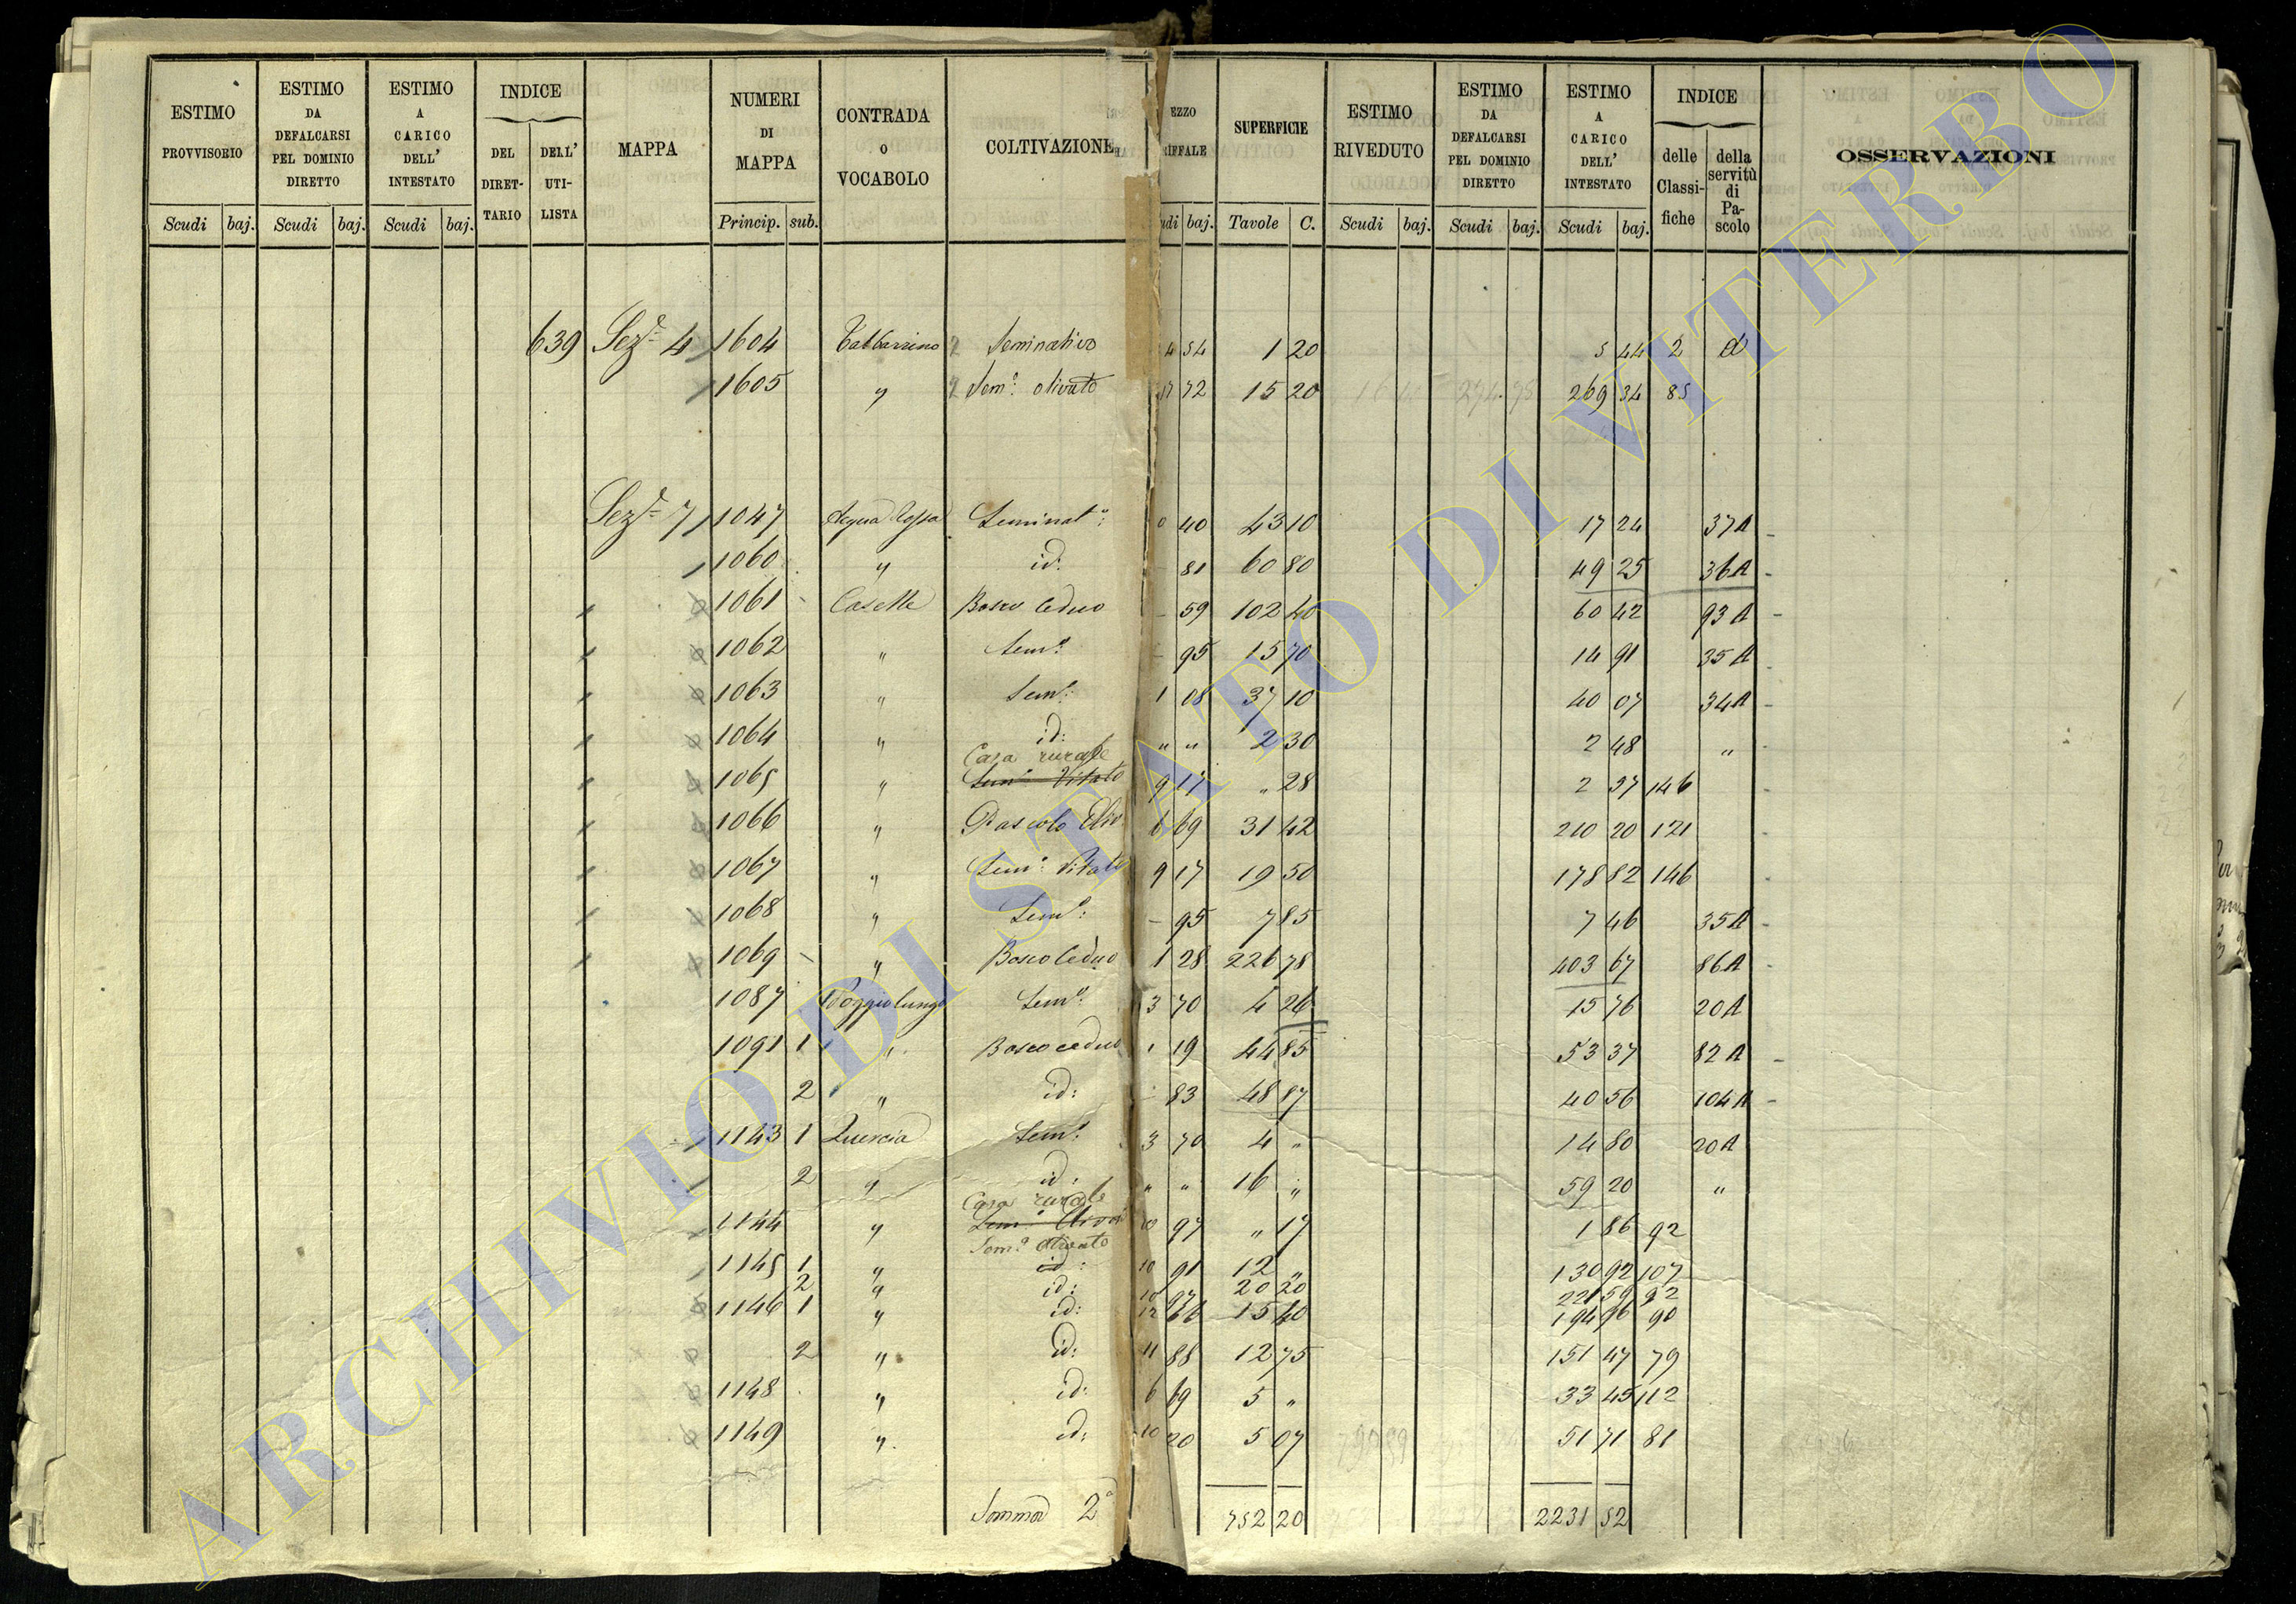 ESTIMO PROVVISORIO | ESTIMO DA DEFALCARSI PEL DOMINIO DIRETTO | ESTIMO A CARICO DELL' INTESTATO | INDICE DEL DIRETTARIO | DELL' UTILISTA | MAPPA | NUMERI DI MAPPA | CONTRADA O VOCABOLO | COLTIVAZIONE | EZZO RIFFALE | SUPERFICIE | ESTIMO RIVEDUTO | ESTIMO DA DEFALCARSI PEL DOMINIO DIRETTO | ESTIMO A CARICO DELL' INTESTATO | INDICE delle Classifiche | della servitù di Pascolo | OSSERVAZIONI
Scudi baj. Scudi baj. Scudi baj. Princip. sub. udi baj. Tavole C. Scudi baj. Scudi baj. Scudi baj.
639 Sez.e 4 1604 Seminativo 4 54 1 20 5 44 2 d
1605 " Sem.o olivato 17 72 15 20 269 34 85
Sez.e 7 1047 Acqua Rossa Seminat.o: 0 40 43 10 17 24 37A
1060 " id: 81 60 80 49 25 36A
1061 Caselle Bosco Ceduo - 59 102 40 60 42 93A
1062 " Sem.o - 95 15 70 14 91 35A
1063 " Sem.o: 1 08 37 10 40 07 34A
1064 " id: " " 2 30 2 48 "
Casa rurale
1065 " Sem.o Vitato 9 17 " 28 2 37 146
1066 " Pascolo Oliv 6 69 31 42 210 20 121
1067 " Sem.o Vitato 9 17 19 50 178 82 146
1068 " Sem.o: - 95 7 85 7 46 35A
1069 " Bosco Ceduo 1 28 226 78 403 67 86A
1087 Poggiolungo Sem.o: 3 70 4 26 15 76 20A
1091 1 " Bosco ceduo 1 19 44 85 53 37 82A
2 " id: 83 48 87 40 56 104A
1143 1 Quercia Sem.o: 3 70 4 " 14 80 20A
2 " id: " " 16 " 59 20 "
Casa rurale
1144 " Sem.o Olivat 10 97 " 17 1 86 92
Sem.o Olivato
1145 1 " id: 10 91 12 " 130 92 107
2 " id: 10 97 20 20 221 59 92
1146 1 " id: 12 66 15 40 194 96 90
2 " id: 11 88 12 75 151 47 79
1148 " id: 6 69 5 " 33 45 112
1149 " id: 10 20 5 07 51 71 81
Somma 2a 752 20 2231 52
ARCHIVIO DI STATO DI VITERBO